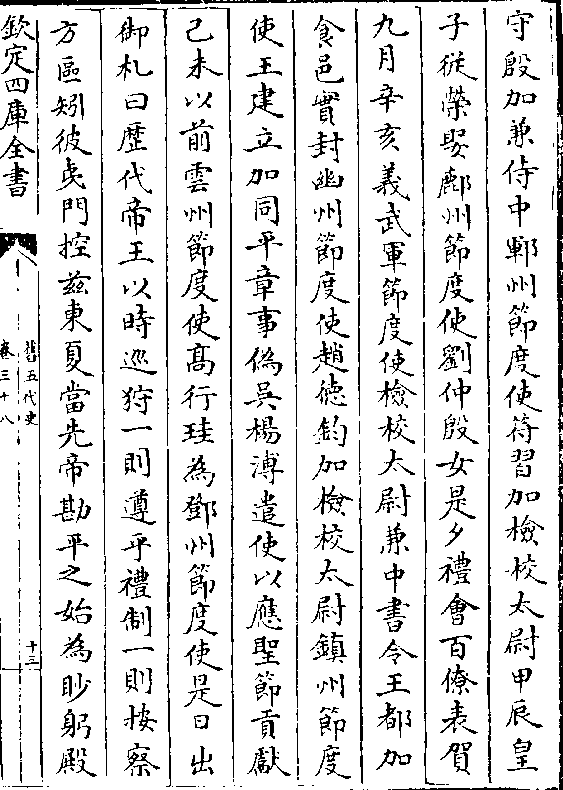 守殷加兼侍中鄆州節度使符習加檢校太尉甲辰皇
子從榮娶鄜州節度使劉仲殷女是夕禮會百僚表賀
九月辛亥義武軍節度使檢校太尉兼中書令王都加
食邑實封幽州節度使趙德鈞加檢校太尉鎮州節度
使王建立加同平章事偽吳楊溥遣使以應聖節貢獻
己未以前雲州節度使高行珪為鄧州節度使是日出
御札曰歷代帝王以時巡狩一則遵乎禮制一則按察
方區矧彼夷門控茲東夏當先帝勘平之始為眇躬殿
欽定四庫全書
舊五代史
卷三十八
十三